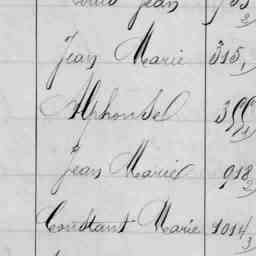 Jean
Jean Marie 315
Alphonsel 355
Jean Marie 918
2
Constant Marie 1014
3